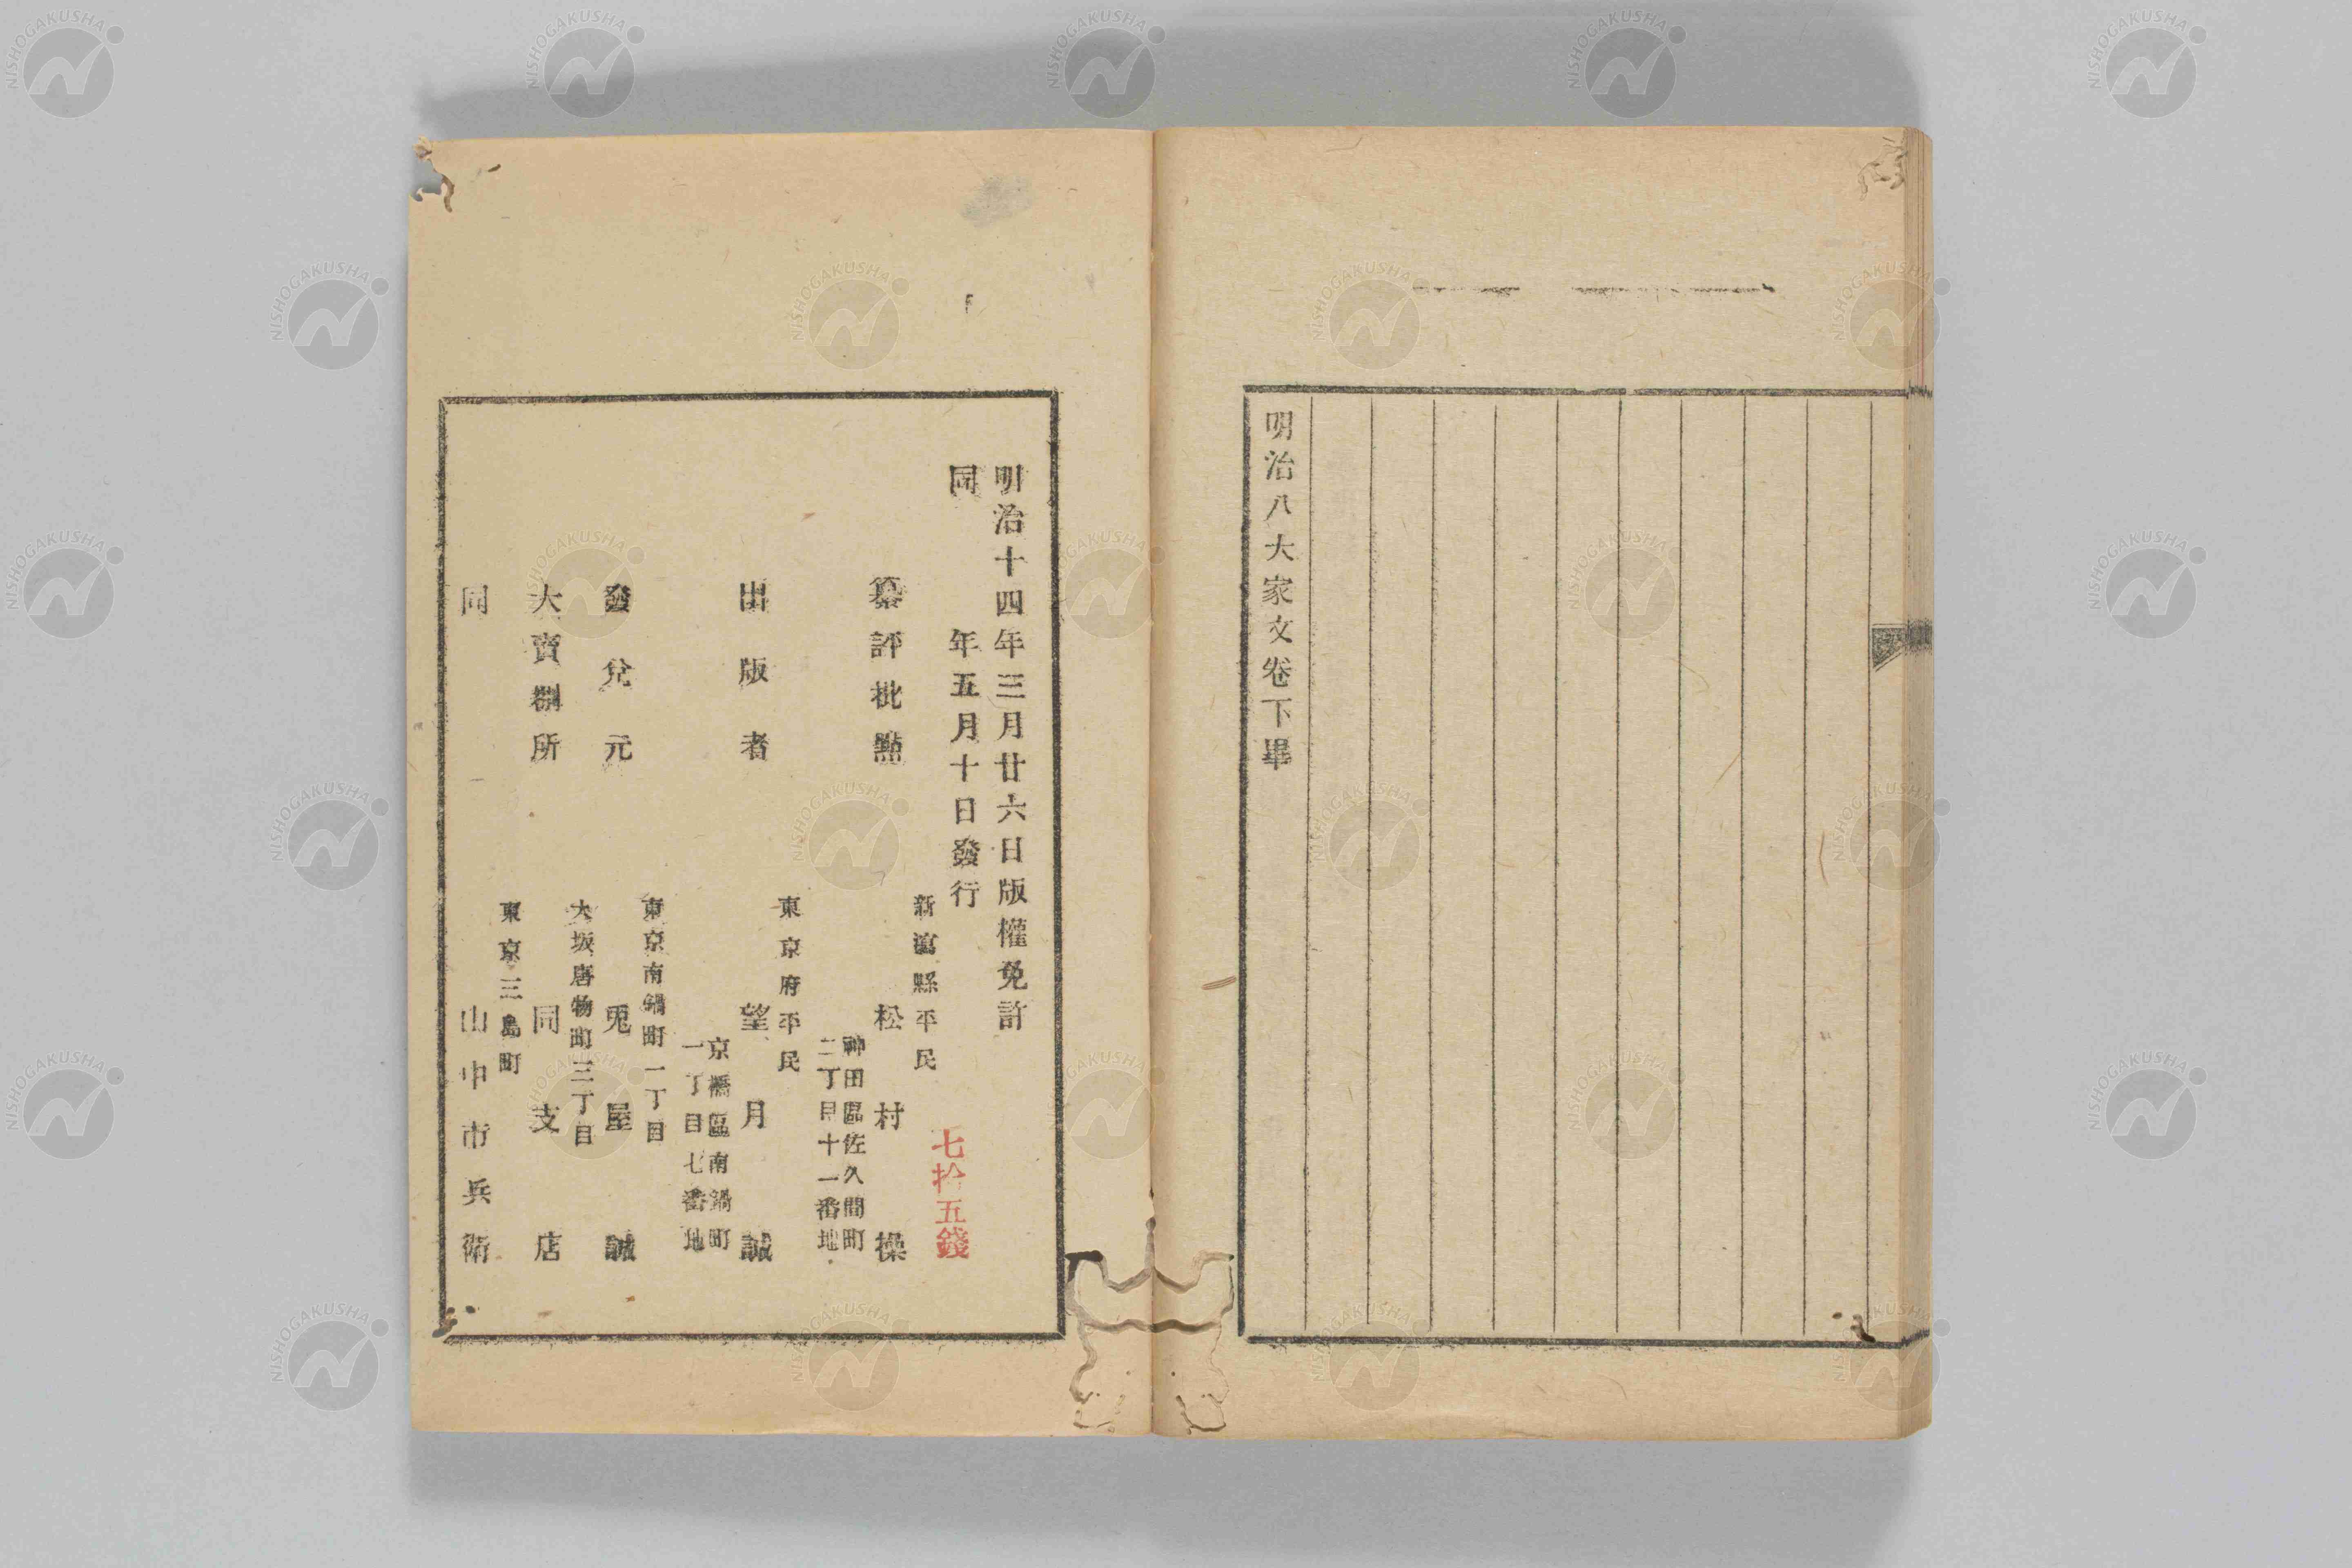 明治八大家文卷下畢
明治十四年三月廿六日版權免許
同年五月十日發行
七拾五錢
新潟縣平民
纂評批點 松村操
神田區佐久間町
二丁目十一番地
東京府平民
出版者 望月誠
京橋區南鍋町
一丁目七番地
東京南鍋町一丁目
發兌元 兎屋誠
大坂唐物町三丁目
大賣捌所 同支店
東京三島町
同 山中市兵衛
NISHOGAKUSHA